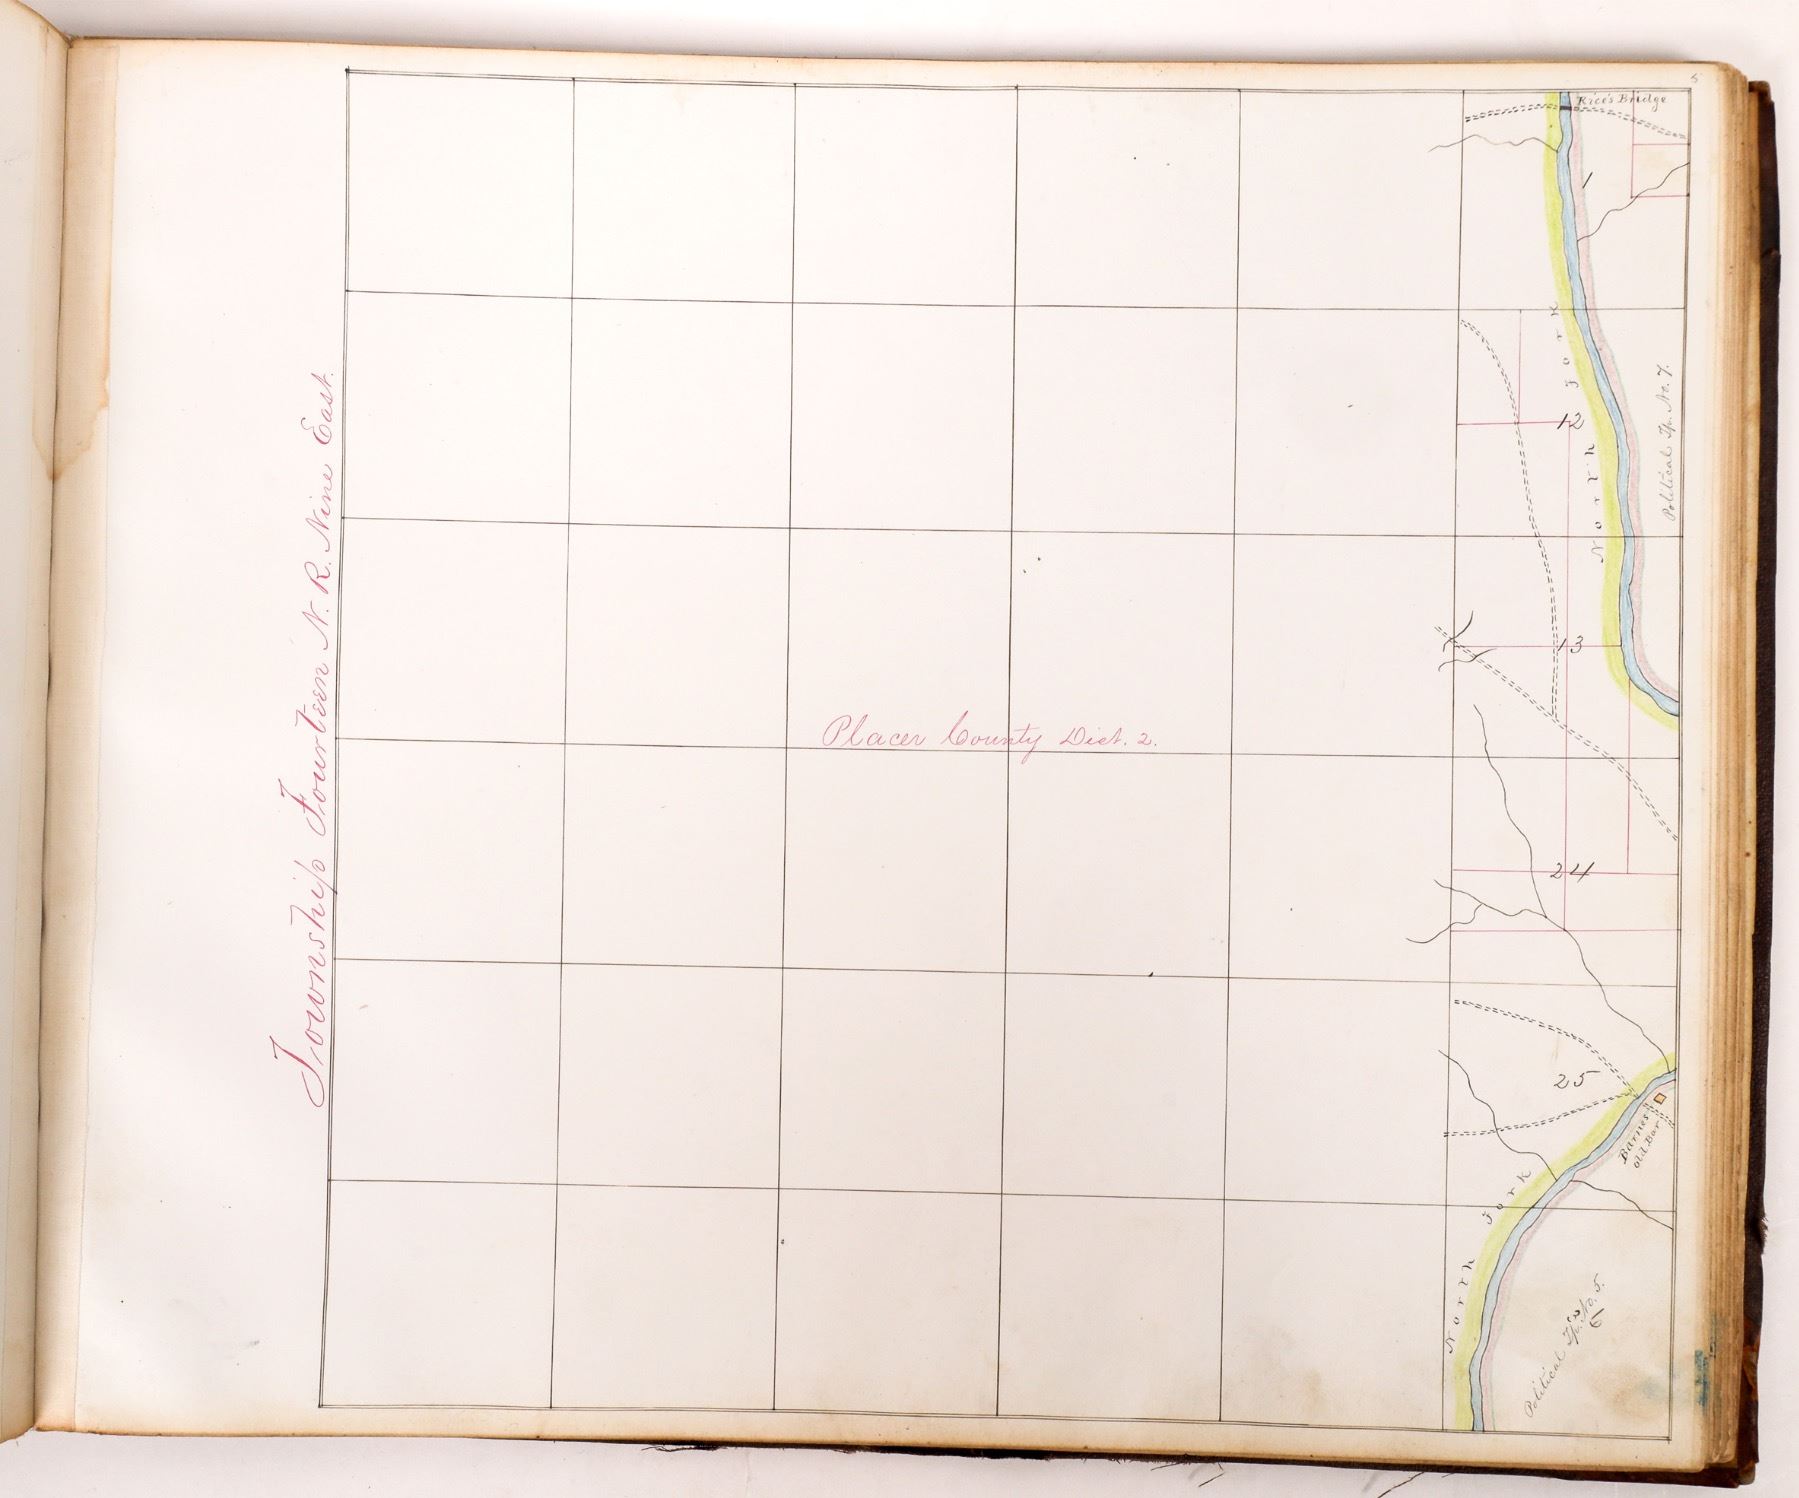 5
Rice's Bridge
1
North Fork
12
Political Tp. No. 7.
13
Township Fourteen N. R. Nine East.
Placer County Dist. 2.
24
25
Barnes
Old Bar
North Fork
Political Tp. No. 5.
6